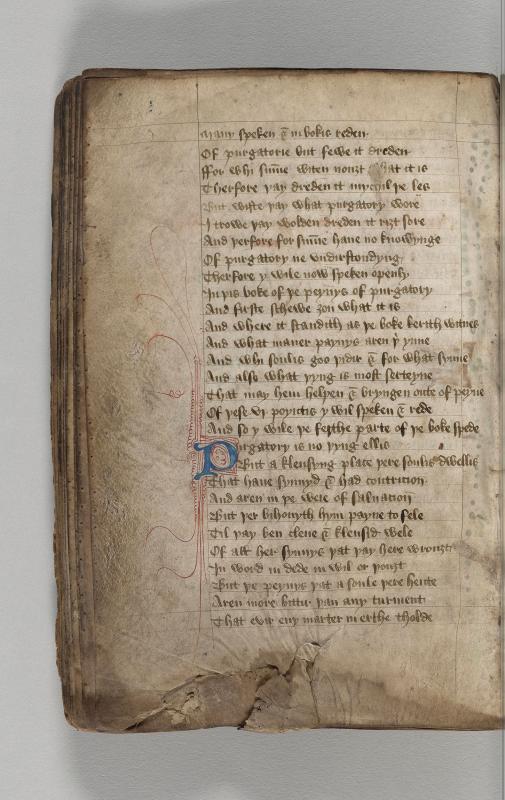 Many speken & in bokis reden
Of purgatorie but fewe it dreden
Ffor whi summe witen nouȝt what it is
Therfore þay dreden it mychil þe les
But wiste þay what purgatory wore
I trowe þay wolden dreden it riȝt sore
And þerfore for summe haue no knowynge
Of purgatory ne vndirstondyng
Therfore y wile now speken openly
In þis boke of þe peynys of purgatory
And firste schewe ȝou what it is
And where it standith as þe boke berith witnes
And what maner paynys aren þer ynne
And whi soulis goo þidir & for what synne
And also what þyng is most serteyne
That may hem helpen & bryngen oute of peyne
Of þese vi poyntis y wil speken & rede
And so y wile þe ferþe parte of þe boke spede
Purgatory is no þyng ellis
But a klensyng place þere soulis dwellis
That haue synnyd & had contricion
And aren in þe weie of saluacion
But þer bihouyth hym payne to fele
Til þay ben clene & klensid wele
Of all her synnys þat þay here wrouȝt
In word in dede in wil or þouȝt
But þe peynys þat a soule þere hente
Aren more bittir þan any turment
That euir eny marter in erthe tholde